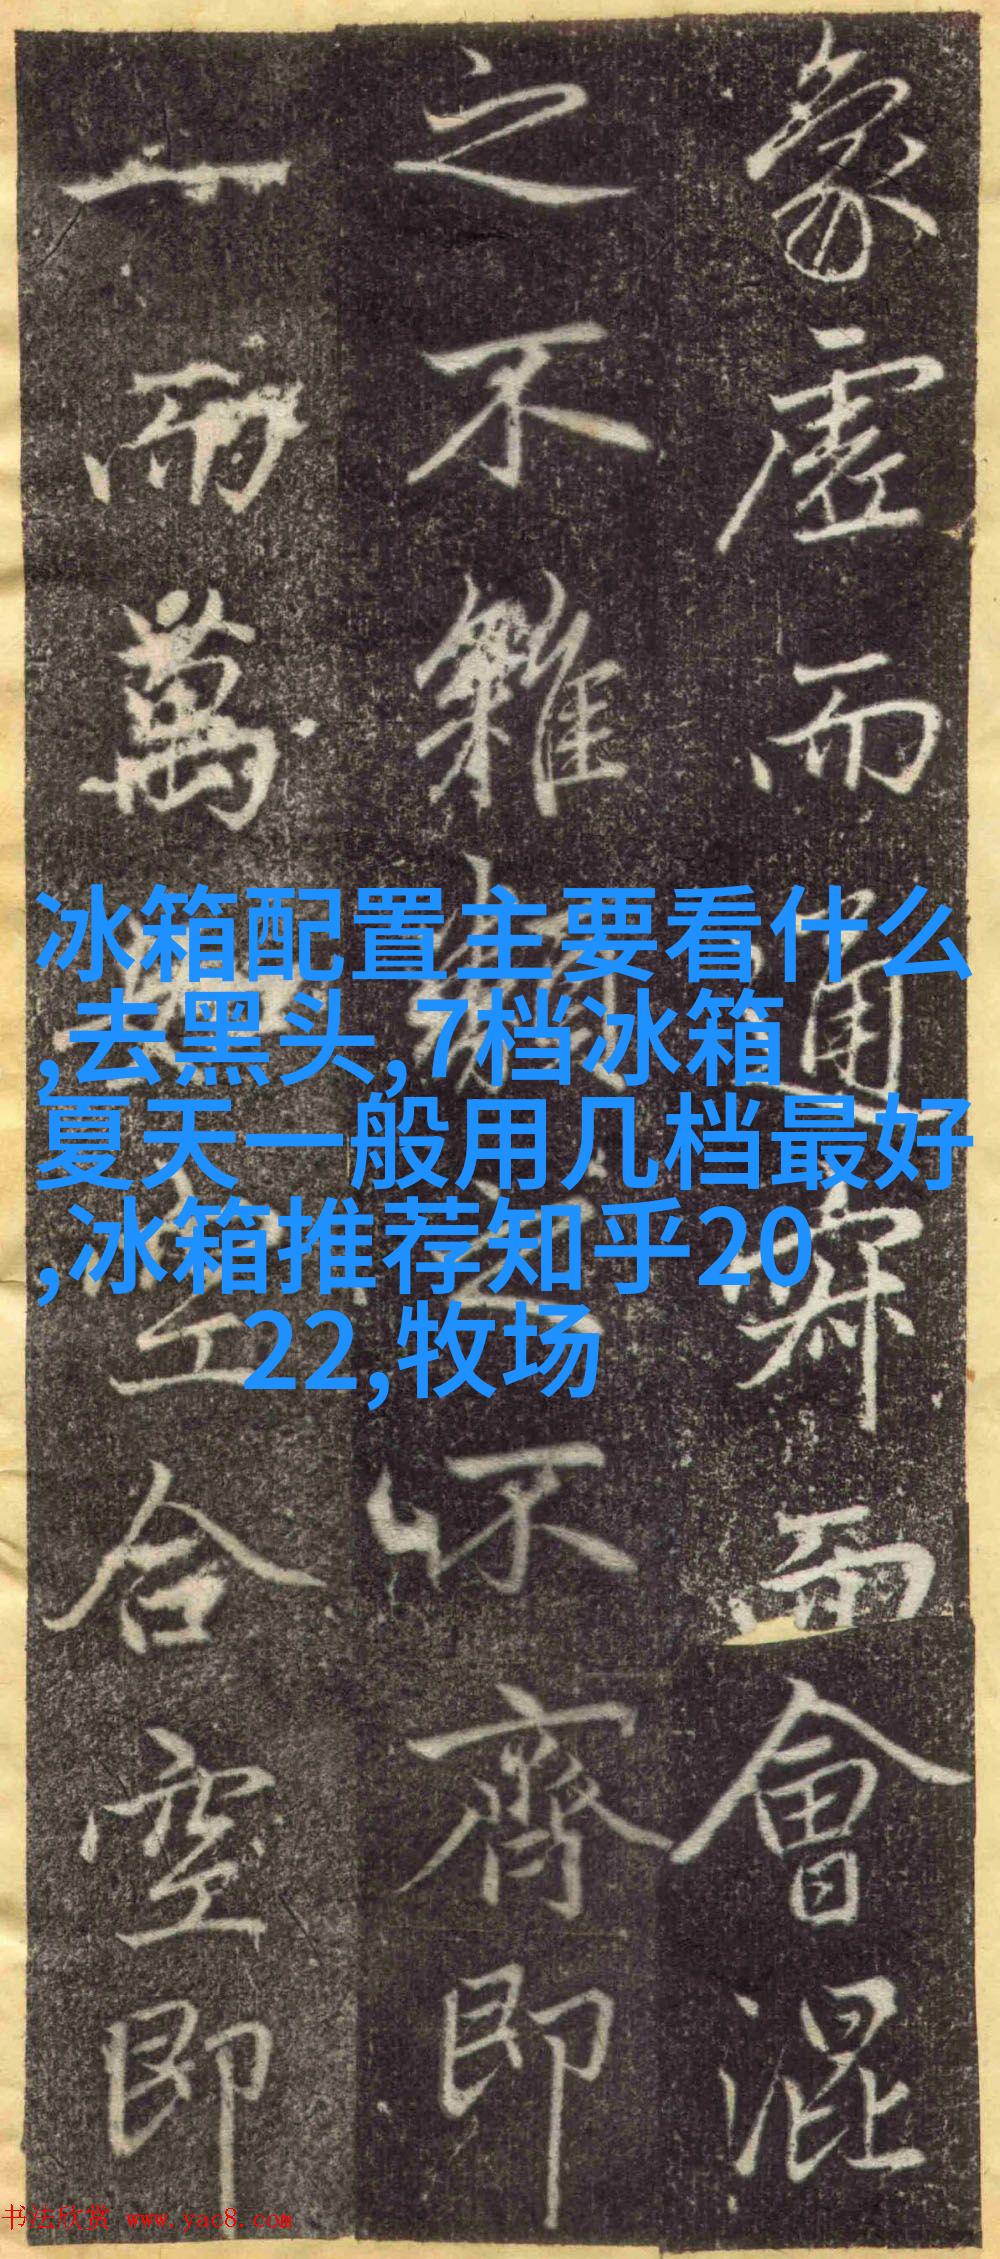 象虛而通寂而會混
之不雜之不齊即
一而萬空合空即
冰箱配置主要看什么
,去黑头,7档冰箱
夏天一般用几档最好
,冰箱推荐知乎20
22,牧场
书法欣赏 www.yac8.com